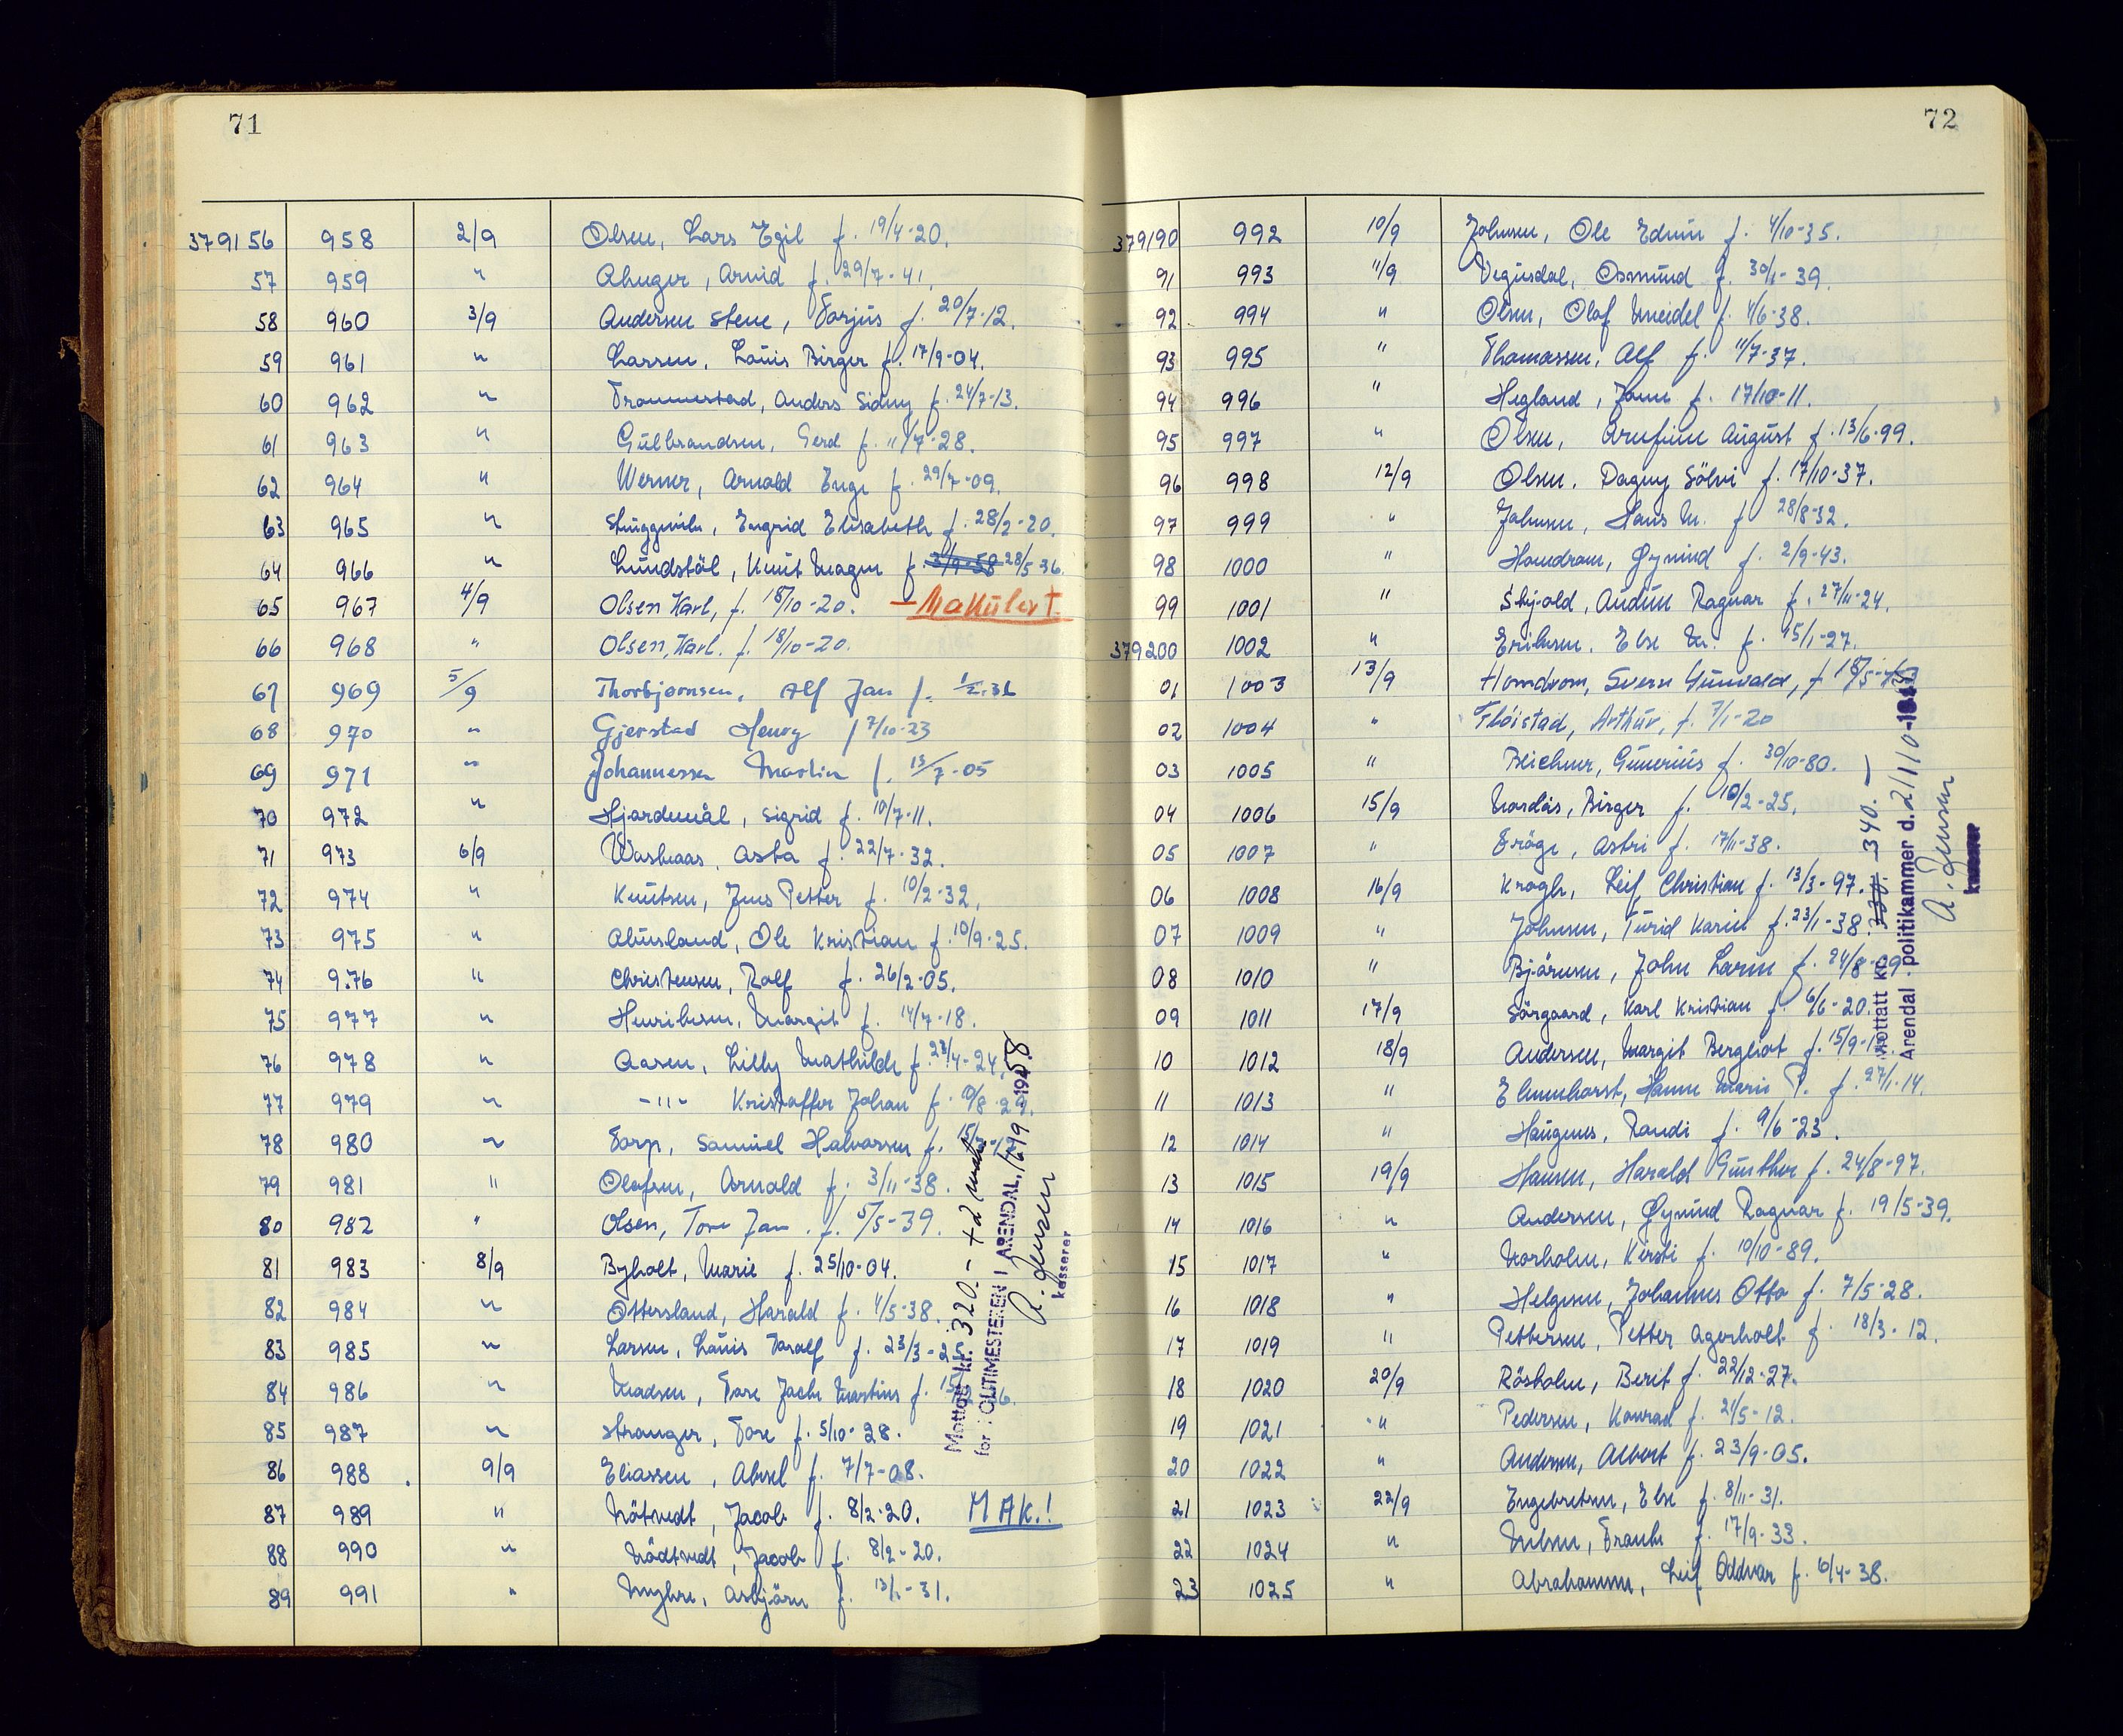 71
379156 958 2/9 Olsen, Lars Egil f. 19/4-20.
57 959 " Aluger, Arvid f. 29/7-41.
58 960 3/9 Andersen Stene, Torjus f. 20/7-12.
59 961 " Larsen, Louis Birger f. 17/9-04.
60 962 " Trommestad, Anders Sidny f. 24/7-13.
61 963 " Gulbrandsen, Gerd f. 11/7-28.
62 964 " Werner, Arnold Enge f. 29/7-09.
63 965 " Ingrid Elisabeth f. 28/2-20.
64 966 " Lundstöl, Knut Magn f. 3/9-58 28/5 36.
65 967 4/9 Olsen Karl, f. 18/10-20. - Makulert
66 968 " Olsen, Karl. f. 18/10-20.
67 969 5/9 Thorbjørnsen, Alf Jan f. 1/2.31
68 970 " Gjerstad Henry f 7/10-23
69 971 " Johannessen Martin f. 13/7-05
70 972 " Hjardemål, Sigrid f. 10/7-11.
71 973 6/9 Washaas, Asta f. 22/7-32.
72 974 " Knutsen, Jens Petter f. 10/2-32.
73 975 " Ole Kristian f. 10/9-25.
74 976 " Christensen, Rolf f. 26/2-05.
75 977 " Henriksen, Margit f. 14/7-18.
76 978 " Aasen, Lilly Mathilde f. 23/4-24.
77 979 " -"- Kristoffer Johan f.
78 980 " Torp, Samuel Halvorsen f.
79 981 " Olafsen, Arnold f. 3/11-38.
80 982 " Olsen, Tore Jan. f. 5/5-39.
81 983 8/9 Byholt, Marie f. 25/10-04.
82 984 " Ottersland, Harald f. 4/5-38.
83 985 " Larsen, Louis Tharalf f. 23/3-25
84 986 " Madsen, Tore Jacob Martins f.
85 987 " Stranger, Tore f. 5/10-28.
86 988 9/9 Eliassen, Aksel f. 7/7-08.
87 989 " Nötvedt, Jacob f. 8/2-20. MAK.!
88 990 " Nödtvedt, Jacob f. 8/2-20.
89 991 " Myhre, Asbjörn f. 13/1-31.
Mottatt kr. 320.- + 2 mak.
for POLITIMESTEREN I ARENDAL, 16/9 1958
A. Jensen
kasserer
72
379190 992 10/9 Johnsen, Ole Edvin f. 4/10-35.
91 993 11/9 Vegusdal, Osmund f. 30/1-39.
92 994 " Olsen, Olaf Meidel f. 4/6-38.
93 995 " Thomassen, Alf f. 11/7-37.
94 996 " Hegland, f. 17/10-11.
95 997 " Olsen, Arnfinn August f. 13/6-99.
96 998 12/9 Olsen, Dagny Sölvi f. 17/10-37.
97 999 " Johnsen, Hans M. f 28/8-32.
98 1000 " Homdrom, Øyvind f. 2/9-43.
99 1001 " Skjold, Audun Ragnar f. 27/11-24.
379200 1002 " Eriksen, Else M. f. 15/1-27.
01 1003 13/9 Homdrom, Svern Gunvald, f 18/5-
02 1004 " Flöistad, Arthur, f. 7/1-20
03 1005 " Beichner, Gunerius f. 30/10-80.
04 1006 15/9 Nordås, Birger f. 10/2-25.
05 1007 " Fröge, Astri f. 17/11-38.
06 1008 16/9 Krogh, Leif Christian f. 13/3-97.
07 1009 " Johnsen, Turid Karin f. 23/1-38.
08 1010 " Bjørnsen, John Larin f. 24/8-09.
09 1011 17/9 Sörgaard, Karl Kristian f. 6/6-20.
10 1012 18/9 Andersen, Margit Bergliot f. 15/9-
11 1013 " Elmenhorst, Hanne Marie P. f. 27/1-14.
12 1014 " Haugenes, Randi f. 9/6-23.
13 1015 19/9 Hansen, Harald Gunther f. 24/8-97.
14 1016 " Andersen, Øyvind Ragnar f. 19/5-39.
15 1017 " Norholm, Kirsti f. 10/10-89.
16 1018 " Helgesen, Johannes Otto f. 7/5-28.
17 1019 " Pettersen, Petter Agerholt f. 18/3-12.
18 1020 20/9 Rösholm, Berit f. 22/12-27.
19 1021 " Pedersen, Konrad f. 21/5-12.
20 1022 " Andersen, Albert f. 23/9-05.
21 1023 22/9 Engebretsen, Else f. 8/11-31.
22 1024 " Nilsen, Frank f. 17/9-33.
23 1025 " Abrahamsen, Leif Oddvar f. 6/4-38.
Mottatt kr. 330.- 340.-
Arendal politikammer d. 2/10-
A. Jensen
kasserer